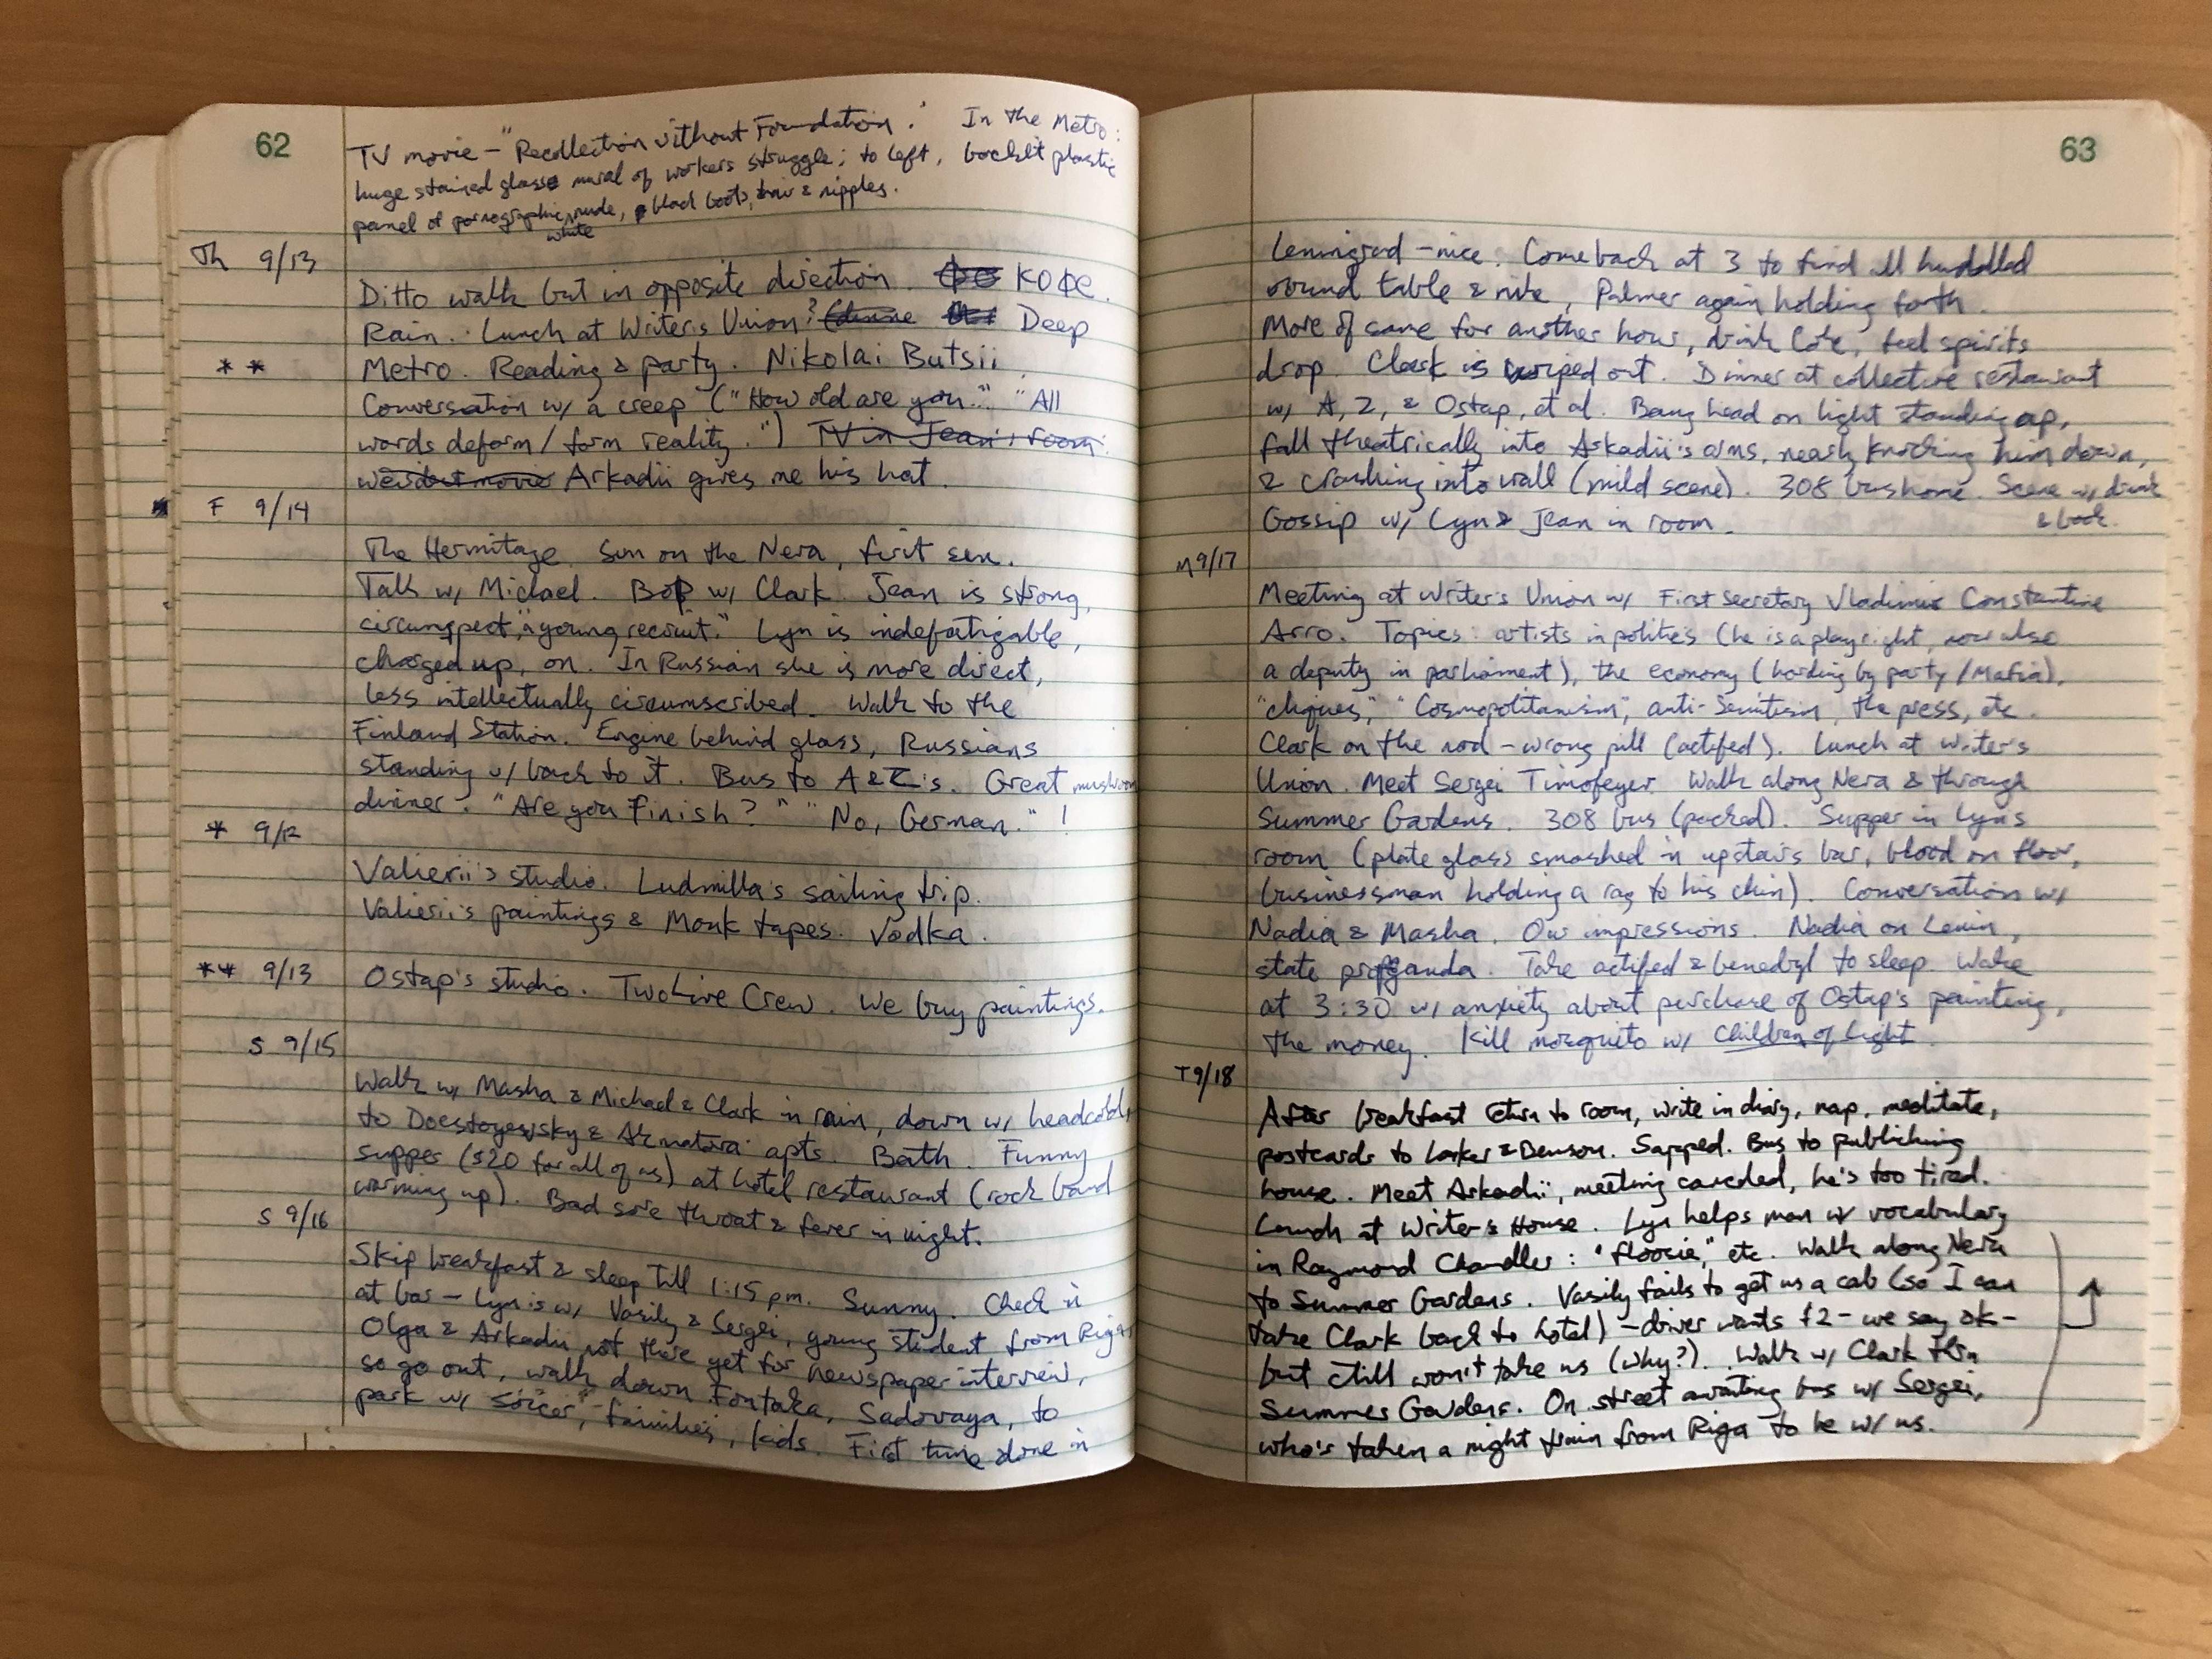 62
TV movie – "Recollection without Foundation." In the Metro:
huge stained glass mural of workers struggle; to left, backlit plastic
panel of pornographic nude, black boots, hair & nipples.
white
Th 9/13
Ditto walk but in opposite direction. КОФЕ.
Rain. Lunch at Writer's Union? Deep
** Metro. Reading & party. Nikolai Butsii.
Conversation w/ a creep ("How old are you..." "All
words deform/form reality.") TV in Jean's room:
weirdest movie Arkadii gives me his hat.
F 9/14
The Hermitage. Sun on the Neva, first sun.
Talk w/ Michael. Bop w/ Clark. Jean is strong,
circumspect, "a young recruit." Lyn is indefatigable,
charged up, on. In Russian she is more direct,
less intellectually circumscribed. Walk to the
Finland Station. Engine behind glass, Russians
standing w/ back to it. Bus to A & Z's. Great mushroom
dinner. "Are you Finish?" "No, German." !
* 9/12
Valierii's studio. Ludmilla's sailing trip.
Valierii's paintings & Monk tapes. Vodka.
** 9/13 Ostap's studio. Two Live Crew. We buy paintings.
S 9/15
Walk w/ Masha & Michael & Clark in rain, down w/ headcold,
to Doestoyevsky & Akmatova apts. Bath. Funny
supper ($20 for all of us) at hotel restaurant (rock band
warming up). Bad sore throat & fever in night.
S 9/16
Skip breakfast & sleep till 1:15 pm. Sunny. Check in
at bar – Lyn is w/ Vasily & Sergei, young student from Riga,
Olga & Arkadii not there yet for newspaper interview,
so go out, walk down Fontaka, Sadovaya, to
park w/ soccer, families, kids. First time alone in
63
Leningrad – nice. Come back at 3 to find all huddled
round table & mike, Palmer again holding forth.
More of same for another hour, drink Coke, feel spirits
drop. Clark is wiped out. Dinner at collective restaurant
w/ A, Z, & Ostap, et al. Bang head on light standing up,
fall theatrically into Arkadii's arms, nearly knocking him down,
& crashing into wall (mild scene). 308 bus home. Scene w/ drunk
& book.
Gossip w/ Lyn & Jean in room.
M 9/17
Meeting at Writer's Union w/ First Secretary Vladimir Constantine
Arro. Topics: artists in politics (he is a playright, now also
a deputy in parliament), the economy (hording by party/Mafia),
"cliques," "Cosmopolitanism", anti-Semitism, the press, etc.
Clark on the nod – wrong pill (actifed). Lunch at Writer's
Union. Meet Sergei Timofeyev. Walk along Neva & through
Summer Gardens. 308 bus (packed). Supper in Lyn's
room (plate glass smashed in upstairs bar, blood on floor,
businessman holding a rag to his chin). Conversation w/
Nadia & Masha. Our impressions. Nadia on Lenin,
state propaganda. Take actifed & benedryl to sleep. Wake
at 3:30 w/ anxiety about purchase of Ostap's painting,
the money. Kill mosquito w/ Children of Light.
T 9/18
After breakfast return to room, write in diary, nap, meditate,
postcards to Larker & Benson. Sapped. Bus to publishing
house. Meet Arkadii, meeting canceled, he's too tired.
Lunch at Writer's House. Lyn helps man w/ vocabulary
in Raymond Chandler: "floosie," etc. Walk along Neva
to Summer Gardens. Vasily fails to get us a cab (so I can
take Clark back to hotel) – driver wants $2 – we say ok –
but still won't take us (why?). Walk w/ Clark thru
Summer Gardens. On street awaiting bus w/ Sergei,
who's taken a night train from Riga to be w/ us.